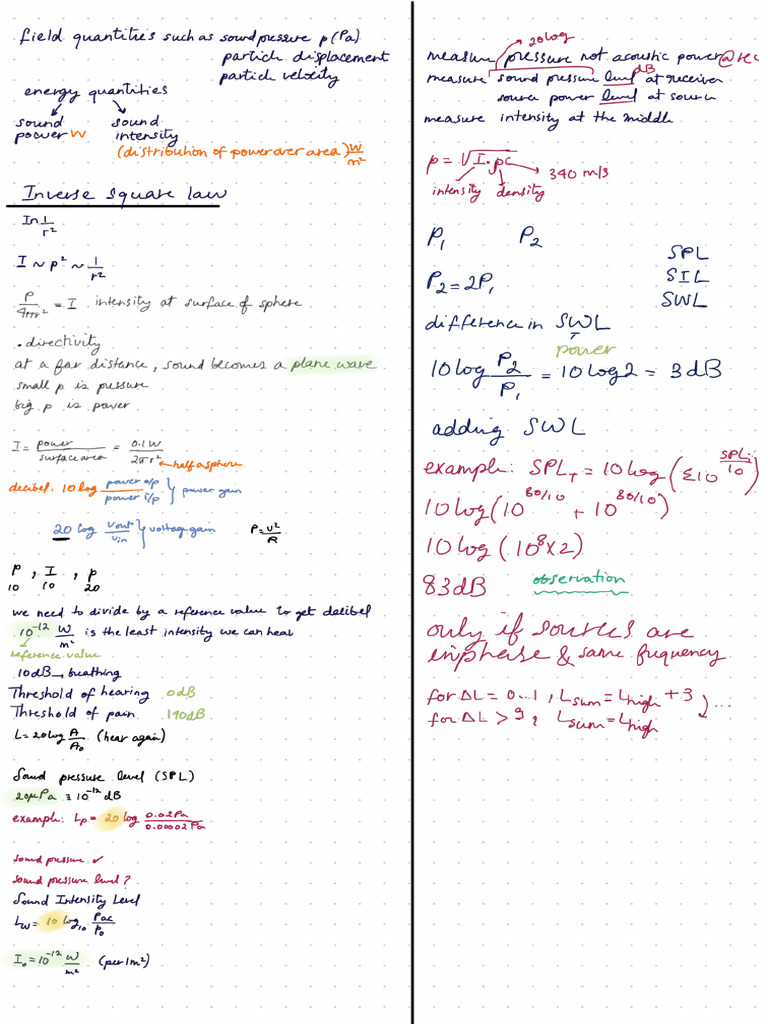 field quantities such as sound pressure p (Pa)
particle displacement
particle velocity
energy quantities
sound power W
sound intensity
(distribution of power over area) W/m²
Inverse square law
In 1/r²
I ~ p² ~ 1/r²
P/4πr² = I intensity at surface of sphere
• directivity
at a far distance, sound becomes a plane wave
small p is pressure
big p is power
I = power/surface area = 0.1W/2πr²
← half a sphere
decibel: 10 log power o/p / power i/p } power gain
20 log Vout/Vin } voltage gain P = V²/R
P , I , p
10 10 20
we need to divide by a reference value to get decibel
10⁻¹² W/m² is the least intensity we can hear
reference value
10dB → breathing
Threshold of hearing 0dB
Threshold of pain 140dB
L = 20 log A/A₀ (hear again)
Sound pressure level (SPL)
20μPa ≡ 10⁻¹² dB
example: Lp = 20 log 0.02Pa/0.00002Pa
sound pressure ✓
sound pressure level?
Sound Intensity Level
Lw = 10 log₁₀ Pac/P₀
I₀ = 10⁻¹² W/m² (per 1m²)
20log
measure pressure not acoustic power @rec
dB
measure sound pressure level at receiver
source power level at source
measure intensity at the middle
p = √I·ρc → 340 m/s
intensity density
P₁ P₂
SPL
P₂ = 2P₁ SIL
SWL
difference in SWL
power
10 log P₂/P₁ = 10 log 2 = 3 dB
adding SWL
example: SPL_T = 10 log (Σ10^SPLi/10)
10 log (10^80/10 + 10^80/10)
10 log (10⁸ x 2)
83 dB observation
only if sources are
inphase & same frequency
for ΔL = 0..1, Lsum = Lhigh + 3 ...
for ΔL > 9, Lsum = Lhigh